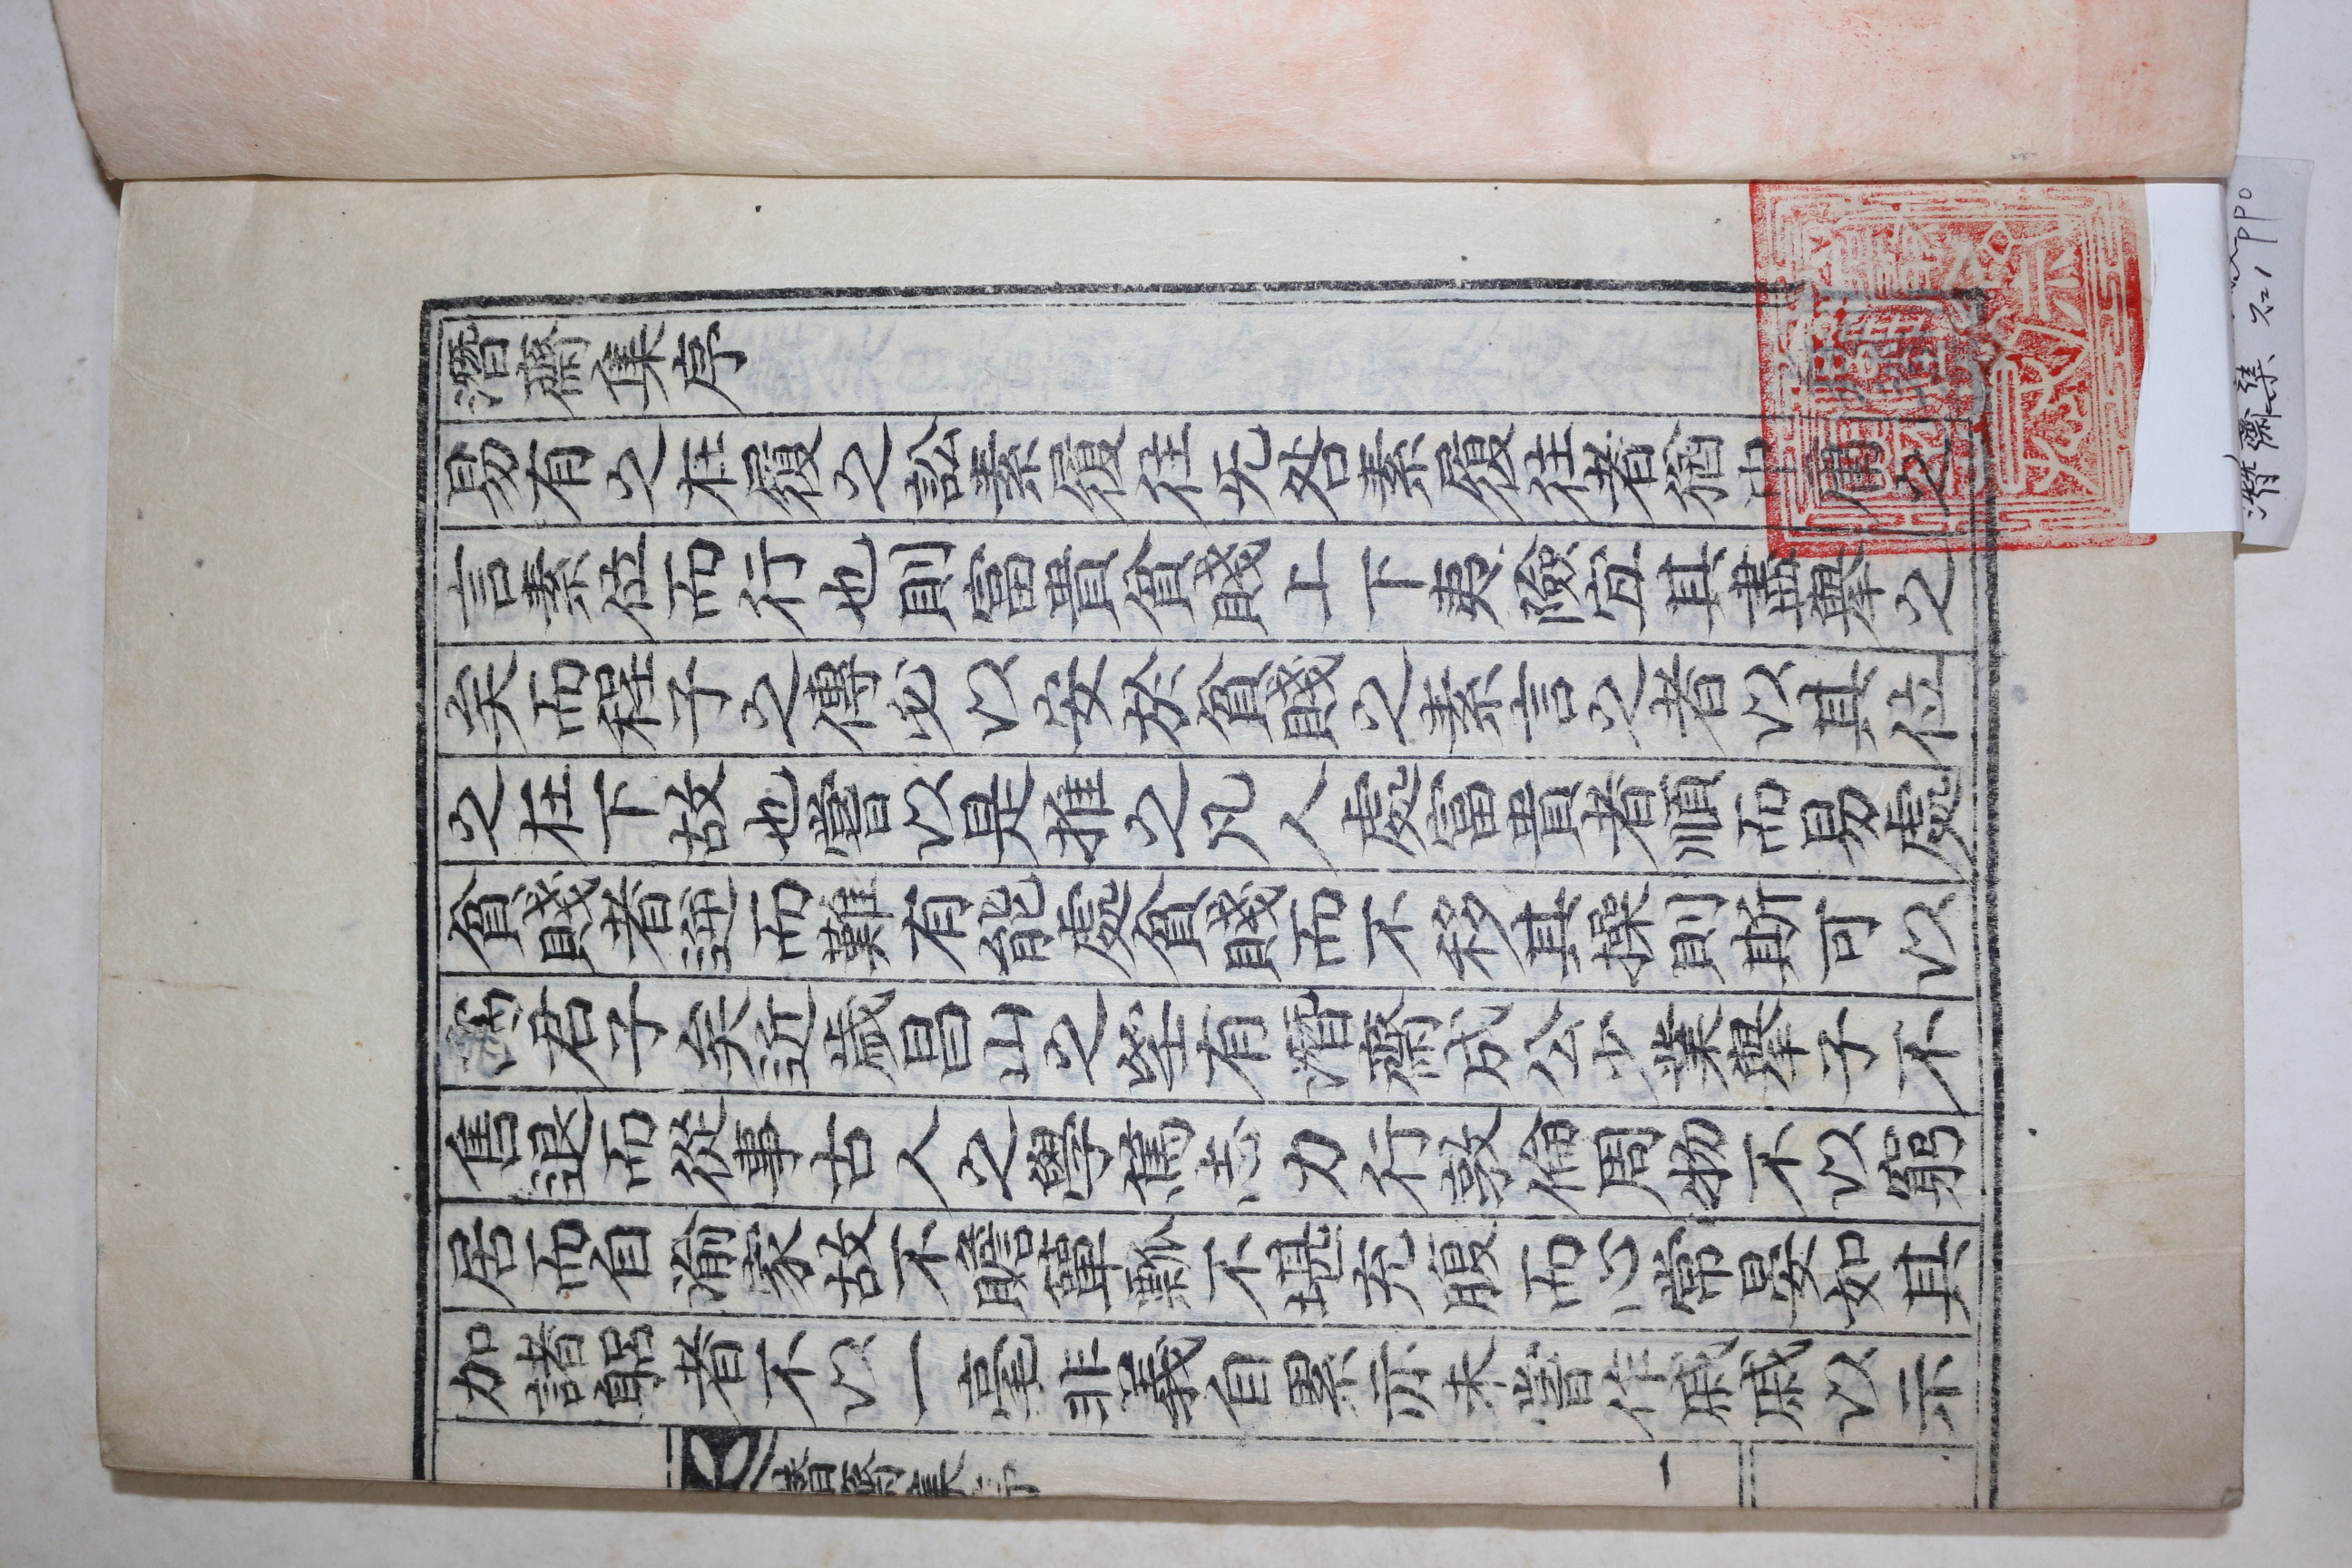 潛齋集序
易有之在履之訟素履往无咎素履往者猶中庸之
言素位而行也則富貴貧賤上下夷險宜其盡擧之
矣而程子之傳必以安於貧賤之素言之者以其位
之在下故也嘗以是推之凡人處富貴者順而易處
貧賤者逆而難有能處貧賤而不移其操則斯可以
謂君子矣近歲昌山之埜有潛齋成公少業擧子不
售退而從事古人之學篤志力行敦倫周物不以窮
居而自渝家故不贍簞瓢不堪充腹而心常晏如其
加諸躳者不以一毫非義自累亦未嘗作戚戚以示
潛齋集序
一
潛齋集